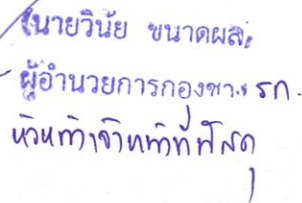 (นายวินัย ขนาดผล)
ผู้อำนวยการกองช่าง รก.
หัวหน้าเจ้าหน้าที่พัสดุ